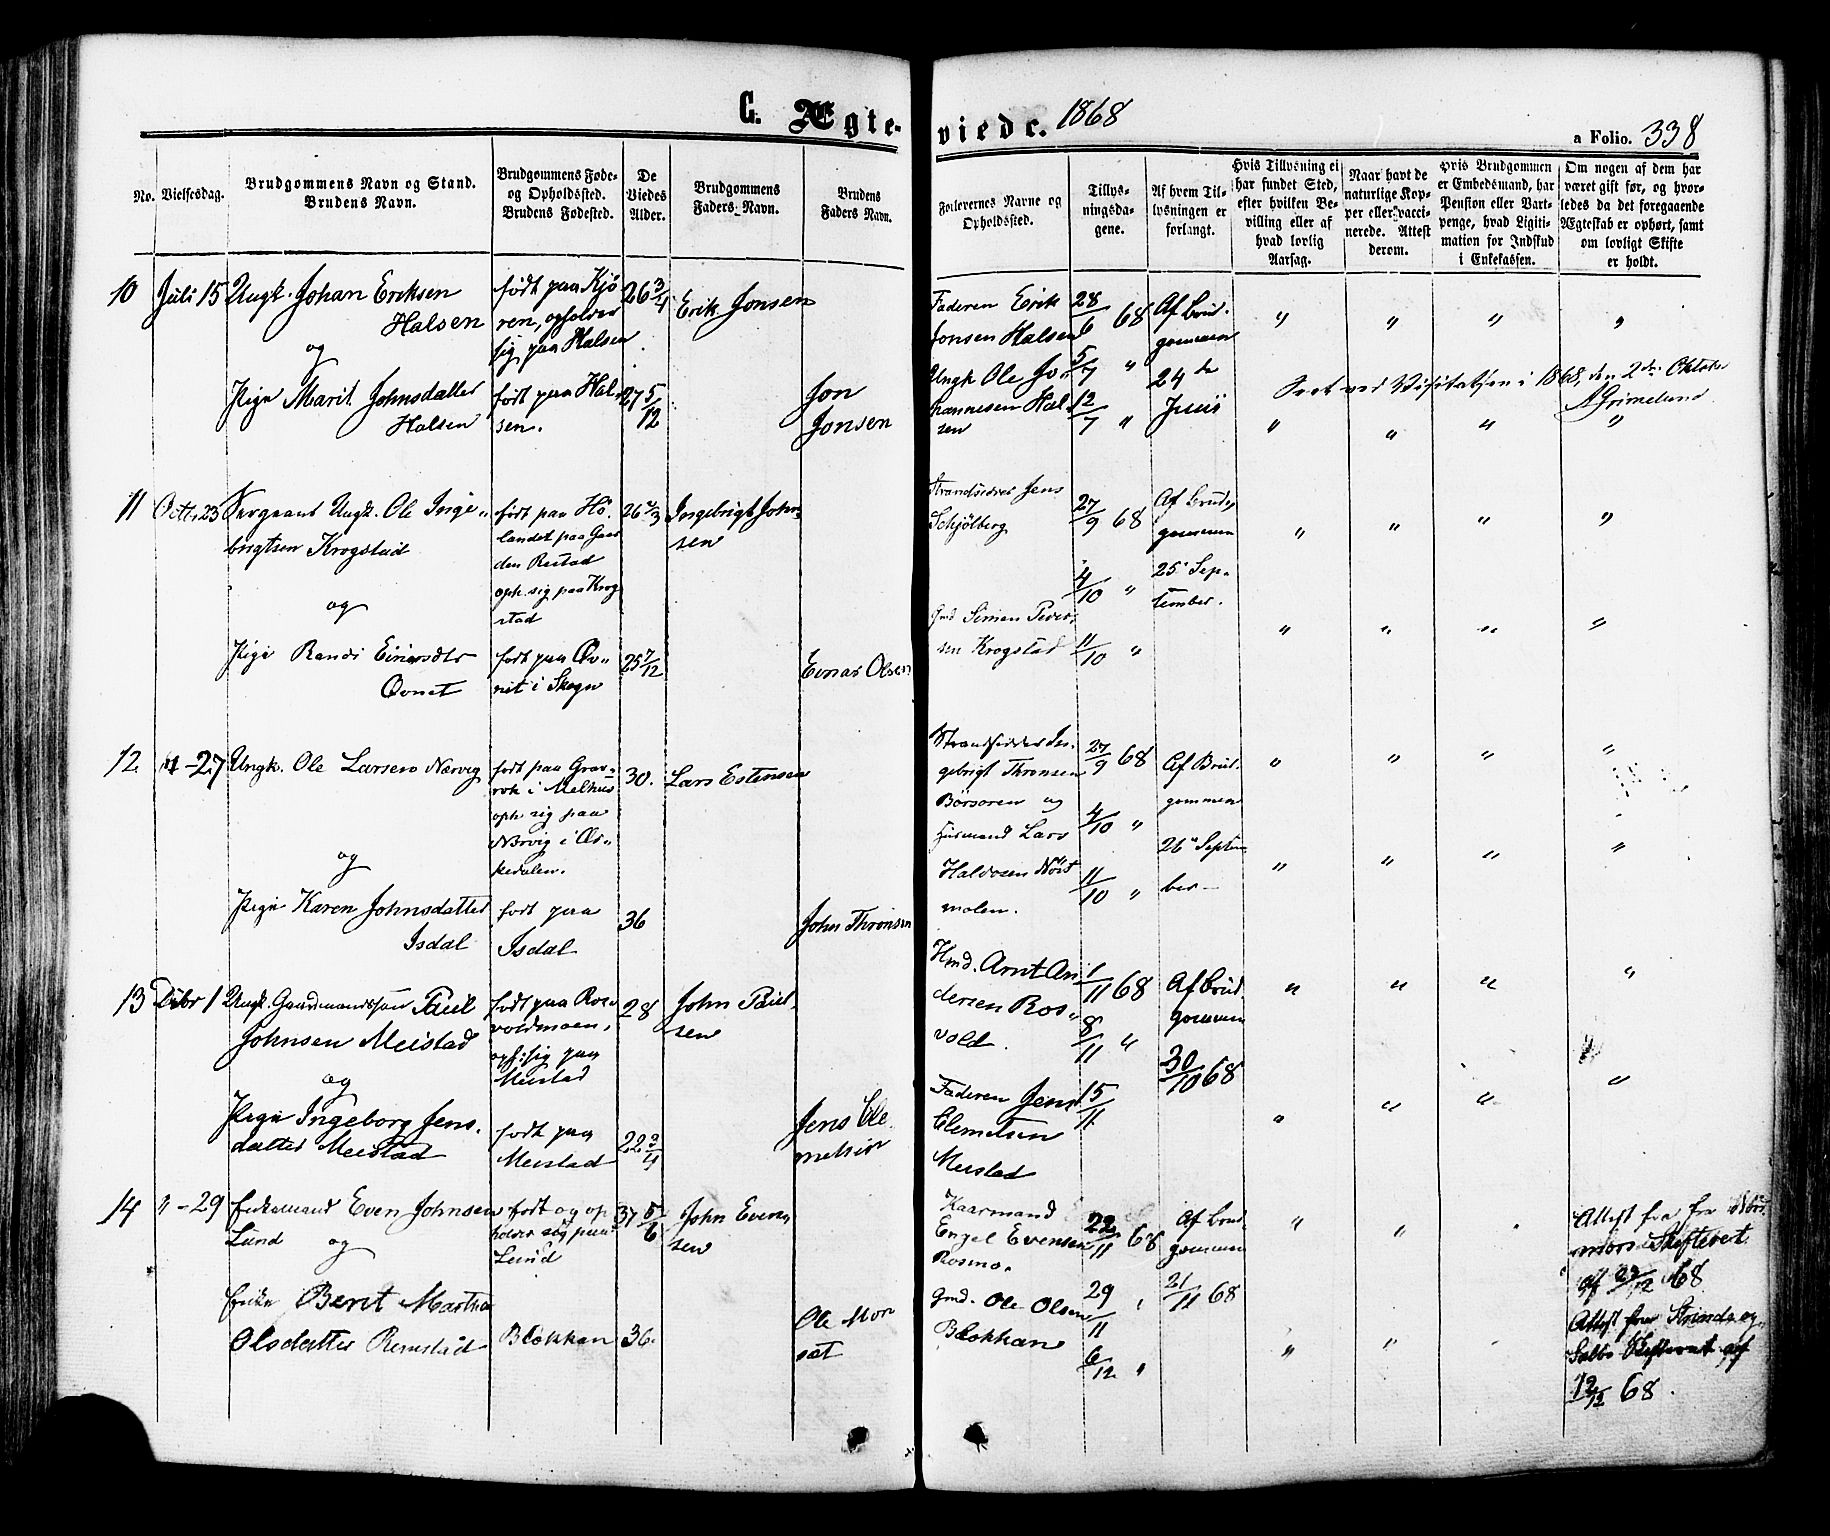 G. Ægteviede. 1868
a Folio. 338
No.
Vielsesdag.
Brudgommens Navn og Stand.
Brudens Navn.
Brudgommens Føde-
og Opholdssted.
Brudens Fødested.
De
Viedes
Alder.
Brudgommens
Faders Navn.
Brudens
Faders Navn.
Forlovernes Navne og
Opholdssted.
Tillys-
ningsda-
gene.
Af hvem Til-
lysningen er
forlangt.
Hvis Tillysning ei
har fundet Sted,
efter hvilken Be-
villing eller af
hvad lovlig
Aarsag.
Naar havt de
naturlige Kop-
per eller vacci-
nerede. Attest
derom.
Hvis Brudgommen
er Embedsmand, har
Pension eller Vart-
penge, hvad Legiti-
mation for Indskud
i Enkekassen.
Om nogen af dem har
været gift før, og hvor-
ledes da det foregaaende
Ægteskab er ophørt, samt
om lovligt Skifte
er holdt.
10 Juli 15 Ungk. Johan Eriksen
Halsen
og
Pige Marit Johnsdatter
Halsen
født paa Kjö
ren, opholder
sig paa Halsen
født paa Hal
sen.
26 3/4
27 5/12
Erik Jonsen
Jon
Jonsen
Faderen Erik
Jonsen Halsen
Ungk Ole Jo
hannesen Hal
sen
28/6 68
5/7 "
12/7 "
Af Brud
gommen
24de
Juni
" " " "
Seet ved Visitatsen i 1868, den 2den Oktober
A Grimelund
" " " "
11 Octb 23 Sergeant Ungk. Ole Inge
brigtsen Krogstad
og
Pige Randi Einarsdtr
Övnet
født paa Hö
landet paa Gaar
den Restad
oph. sig paa Krog
stad
født paa Öv
net i Skogn
26 2/3
25 7/12
Ingebrigt John
sen
Einar Olsen
Strandsidder Jens
Schjölberg
Gmd Simen Peder
sen Krogstad
27/9 68
4/10 "
11/10 "
Af Brud
gommen
25 Sep
tember.
" " " "
" " " "
12. " - 27 Ungk. Ole Larsen Nervig
og
Pige Karen Johnsdatter
Isdal
født paa Grav
rok i Melhus
oph sig paa
Nervig i Ör
kedalen.
født paa
Isdal
30.
36
Lars Estensen
John Thronsen
Strandsidder In
gebrigt Thronsen
Börsören og
Husmand Lars
Haldosen Nöst
molen.
27/9 68
4/10 "
11/10 "
Af Brud
gommen
26 Septem
ber
" " " "
" " " "
13 Decbr 1 Ungk. Gaardmandssön Paul
Johnsen Meistad
og
Pige Ingeborg Jens
datter Meistad
født paa Ros
voldmoen,
oph: sig paa
Meistad
født paa
Meistad
28
22 3/4
John Paul
sen
Jens Cle
metsen
Hmd. Arnt An
dersen Ros
vold.
Faderen Jens
Clemetsen
Meistad
1/11 68
8/11 "
15/11
Af Brud
gommen
30/10 68
" " " "
" " " "
14 " - 29 Enkemand Even Johnsen
Lund og
Enke Berit Martha
Olsdatter Remstad
født og op
holder sig paa
Lund
Blokkan
37 5/6
36.
John Even
sen
Ole Mor
sæt
Kaarmand
Engel Evensen
Rosmo.
Gmd. Ole Olsen
Blokhan
22/11 68
29/11 "
6/12 "
Af Brud
gommen
21/11 68
" "
" "
Attest fra Nord
mörs Skifteret
af 23/12 68
Attest fra Strinda og
Selbo Skifteret af
12/12 68.